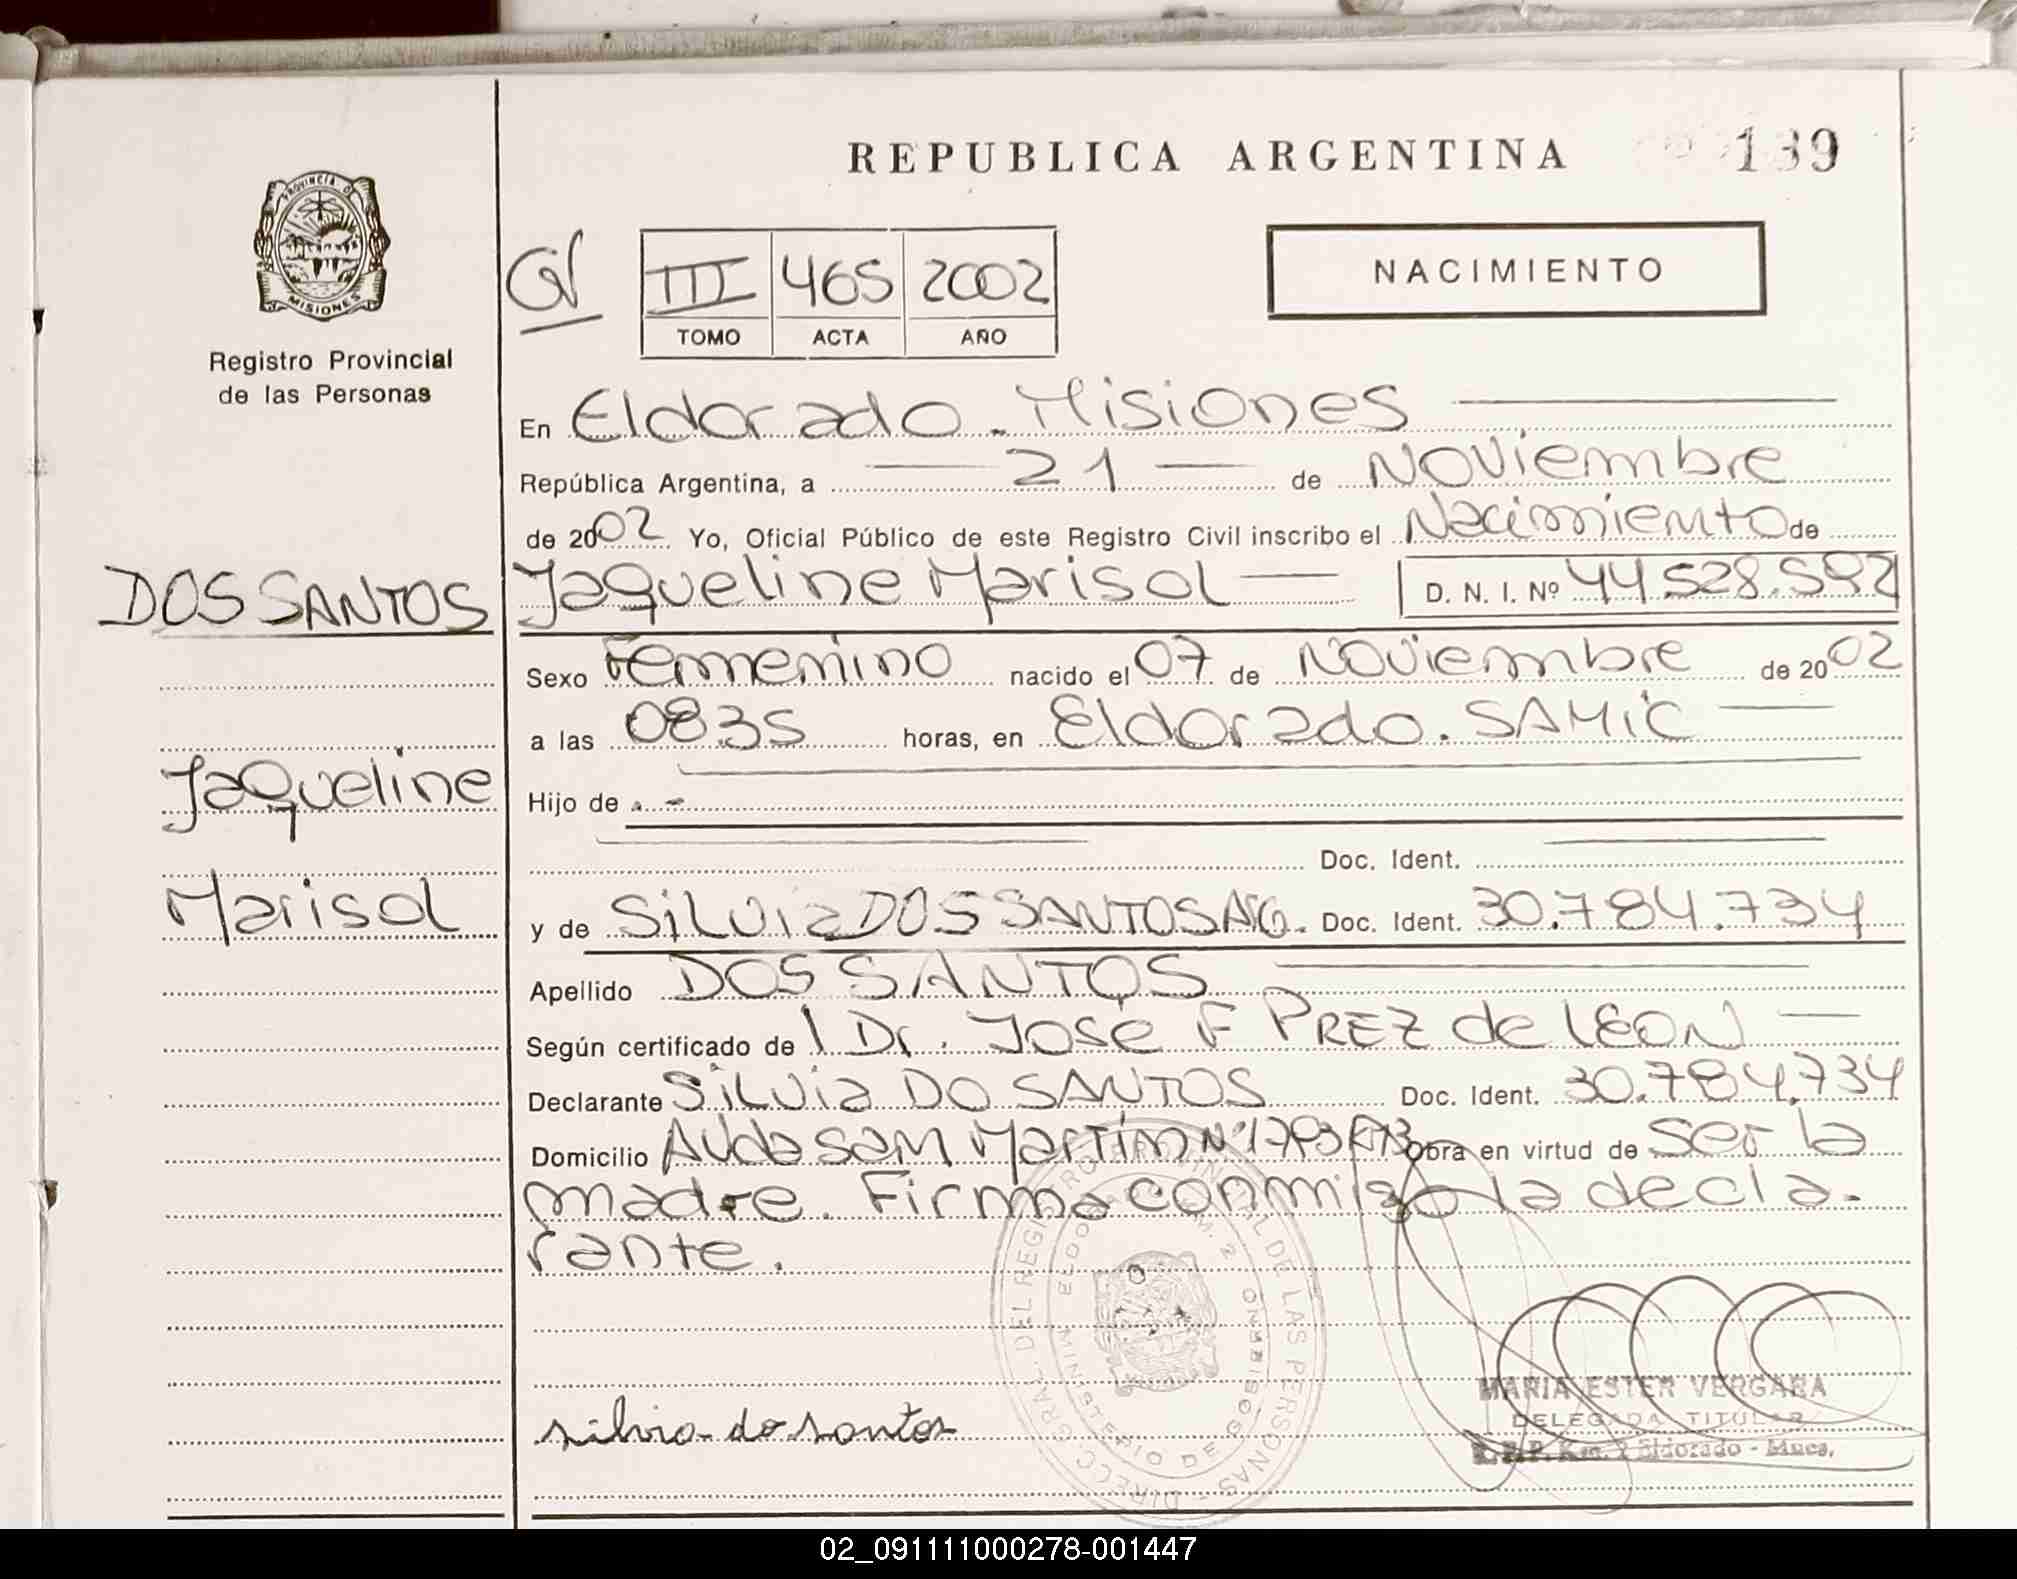 REPUBLICA ARGENTINA 139
PROVINCIA DE
MISIONES
Registro Provincial
de las Personas
III 465 2002
TOMO ACTA AÑO
NACIMIENTO
En Eldorado - Misiones
República Argentina, a 21 de Noviembre
de 2002 Yo, Oficial Público de este Registro Civil inscribo el Nacimiento de
DOS SANTOS Jaqueline Marisol D. N. I. Nº 44.528.592
Sexo Femenino nacido el 07 de Noviembre de 2002
a las 08.35 horas, en Eldorado. SAMIC
Jaqueline
Hijo de
Doc. Ident.
Marisol
y de SiLVia DOS SANTOS ARG. Doc. Ident. 30.784.734
Apellido DOS SANTOS
Según certificado de Dr. José F PREZ de LEON
Declarante SiLVia DO SANTOS Doc. Ident. 30.784.734
Domicilio AVda San Martín Nº obra en virtud de ser la
madre. Firma conmigo la decla-
rante.
DIRECC. GRAL. DEL REGISTRO PROVINCIAL DE LAS PERSONAS
MINISTERIO DE GOBIERNO
silvia do santos
MARIA ESTER VERGARA
DELEGADA TITULAR
R.P.P. Km. 2 Eldorado - Mnes.
02_091111000278-001447